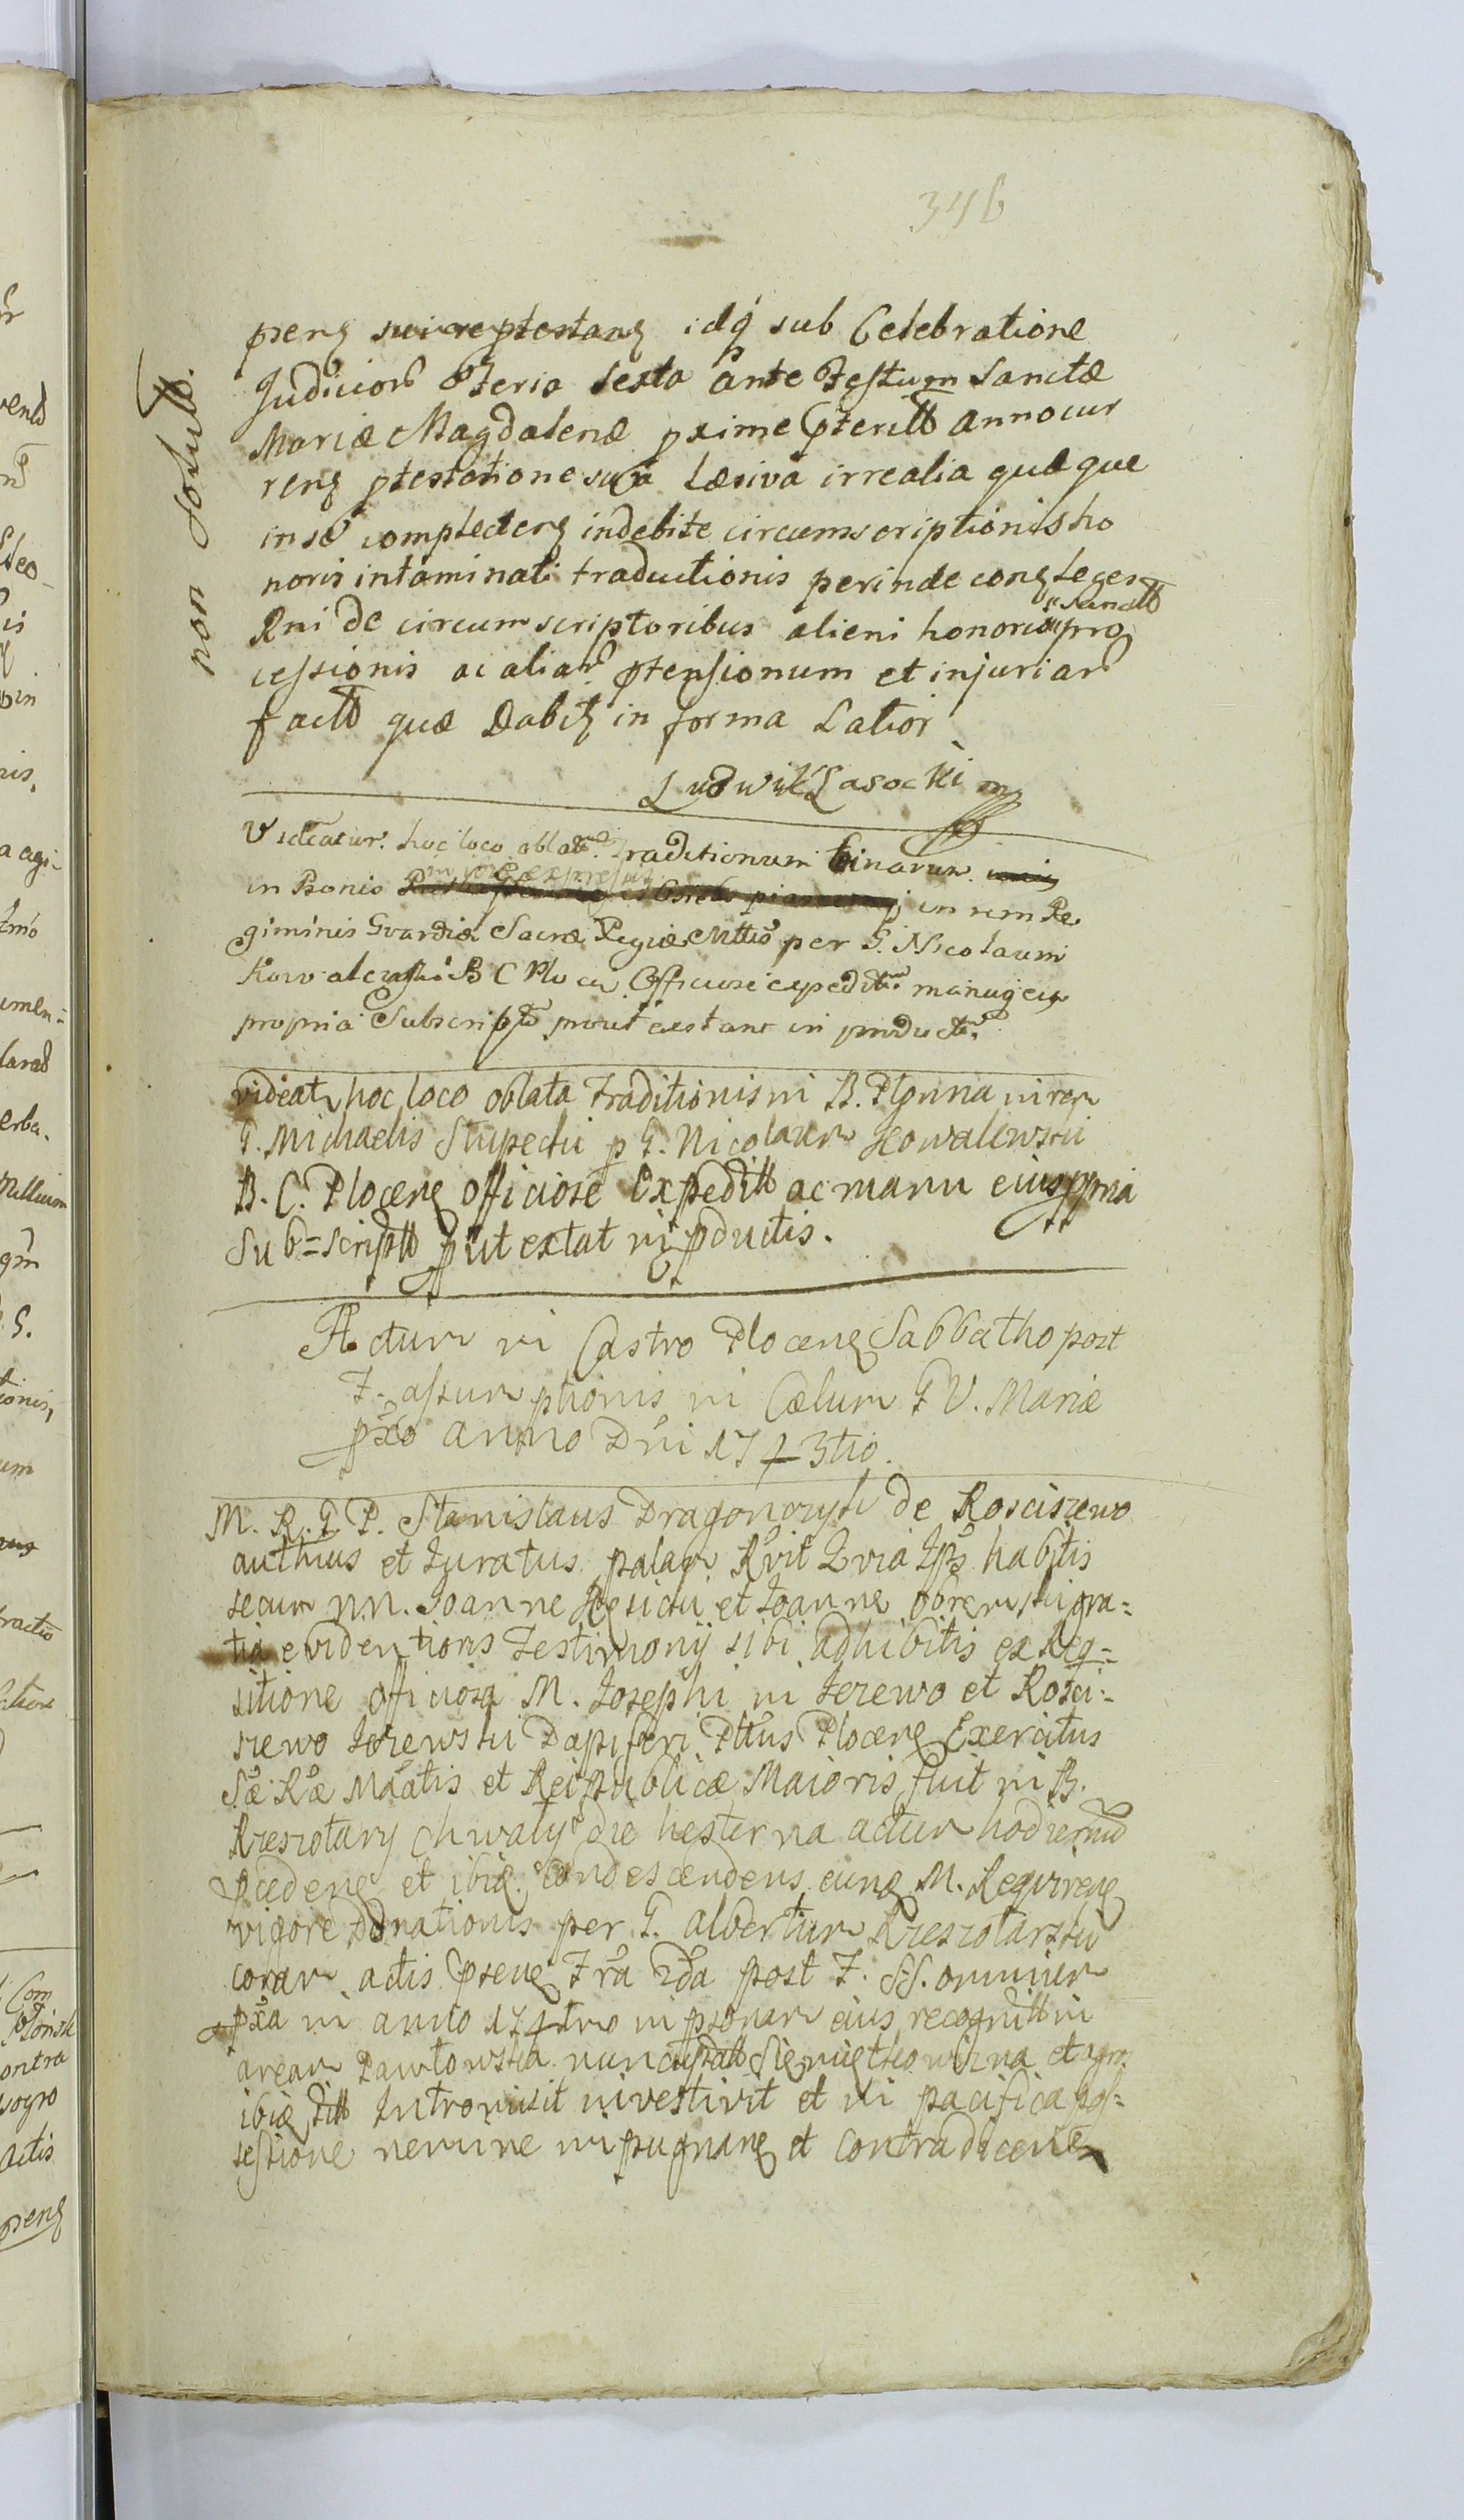 346
non solut.
peng sui reptestang idq sub Celebratione
Judicior Feria Sexta ante Festum Sanctæ
Mariæ Magdalenæ pxime pterit Anno cur
reng ptestatione sua læsiva irrealia quæque
in se complecteng indebite circumscriptionis ho
noris intaminati traductionis perinde cong leges
Rni de circumscriptoribus alieni honoris sancit pro
cessionis ac aliar ptensionum et injuriar
fact quæ Dabit in forma Latior
Ludwik Lasocki mp
Videatur hoc loco oblat Traditionum binarum
in Bonis in rem Re
giminis Gvardiæ Sacræ Regiæ Mttis per G. Nicolaum
Kowalewski B C Plocen Officiose expedit manuq eius
propria Subscript prout extant in productis
videat hoc loco oblata traditionis in B. Plonna in rem
G. Michaelis Stupecki p G. Nicolaum Kowalewski
B. C. Ploceng officiose Expedit ac manu eius ppria
Sub=script put extat in pductis.
Actum in Castro Ploceng Sabbatho post
F. assumptionis in Cælum G V. Mariæ
pxo anno Dni 1743tio.
M. R. G. P. Stanislaus Dragon ozyk de Rosciszewo
authcus et Juratus palam Rvit Qvia Ips habitis
secum nn. Joanne et Joanne gra=
tia evidentioris Testimonij sibi adhibitis ex Req=
sitione officiosa M. Josephi in Jezewo et Rosci=
szewo Jezewski Dapiferi Pttus Ploceng Exercitus
Sæ Ræ Mattis et Reipublicæ Maioris fuit in B.
Krzeszotary Chwały die hesterna actum hodiernum
pcedeng et ibiq condescendens eunq M. Requireng
vigore Donationis per G. Albertum Krzeszotarski
coram actis pseng Fra 2da post F. SS. omnium
pxa in anno 174 in psonam eius recognit in
aream Pawłowska nuncupat et agros
ibiq Intromisit investivit et in pacifica pos=
sessione nemine impugnang et contradiceng